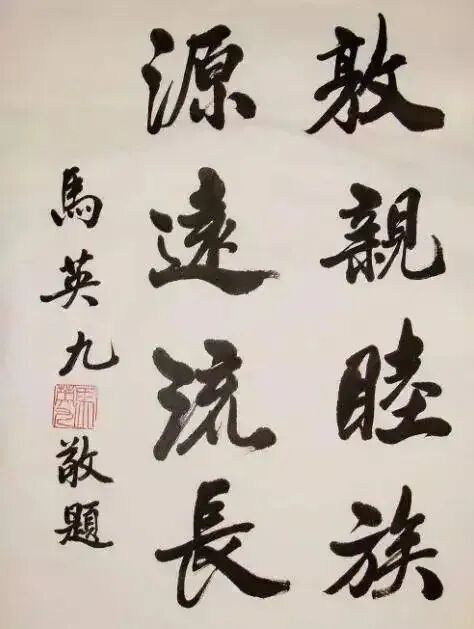 敦親睦族
源遠流長
馬英九
敬題